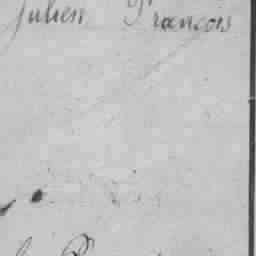 Julien François